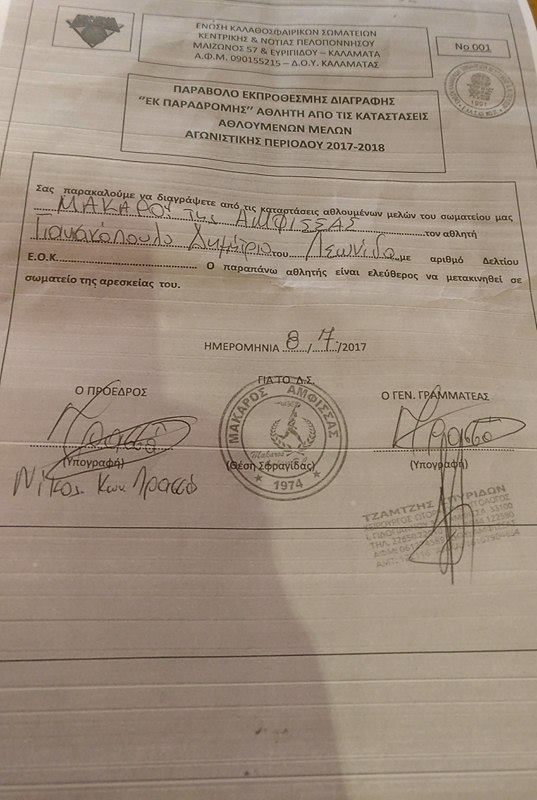 ΕΝΩΣΗ ΚΑΛΑΘΟΣΦΑΙΡΙΚΩΝ ΣΩΜΑΤΕΙΩΝ
ΚΕΝΤΡΙΚΗΣ & ΝΟΤΙΑΣ ΠΕΛΟΠΟΝΝΗΣΟΥ
ΜΑΙΖΩΝΟΣ 57 & ΕΥΡΙΠΙΔΟΥ – ΚΑΛΑΜΑΤΑ
Α.Φ.Μ. 090155215 – Δ.Ο.Υ. ΚΑΛΑΜΑΤΑΣ
No 001
1991
ΠΑΡΑΒΟΛΟ ΕΚΠΡΟΘΕΣΜΗΣ ΔΙΑΓΡΑΦΗΣ
“ΕΚ ΠΑΡΑΔΡΟΜΗΣ” ΑΘΛΗΤΗ ΑΠΟ ΤΙΣ ΚΑΤΑΣΤΑΣΕΙΣ
ΑΘΛΟΥΜΕΝΩΝ ΜΕΛΩΝ
ΑΓΩΝΙΣΤΙΚΗΣ ΠΕΡΙΟΔΟΥ 2017-2018
Σας παρακαλούμε να διαγράψετε από τις καταστάσεις αθλουμένων μελών του σωματείου μας
ΜΑΚΑΡΟΥ της ΑΜΦΙΣΣΑΣ τον αθλητή
Γιαννόπουλο Δημήτριο του Λεωνίδα με αριθμό Δελτίου
Ε.Ο.Κ. Ο παραπάνω αθλητής είναι ελεύθερος να μετακινηθεί σε
σωματείο της αρεσκείας του.
ΗΜΕΡΟΜΗΝΙΑ 8/7/2017
ΓΙΑ ΤΟ Δ.Σ.
Ο ΠΡΟΕΔΡΟΣ
Ο ΓΕΝ. ΓΡΑΜΜΑΤΕΑΣ
ΜΑΚΑΡΟΣ ΑΜΦΙΣΣΑΣ
Makaros
1974
(Υπογραφή)
(Θέση Σφραγίδας)
(Υπογραφή)
Νίκος Κων.
ΤΖΑΜΤΖΗΣ ΣΠΥΡΙΔΩΝ